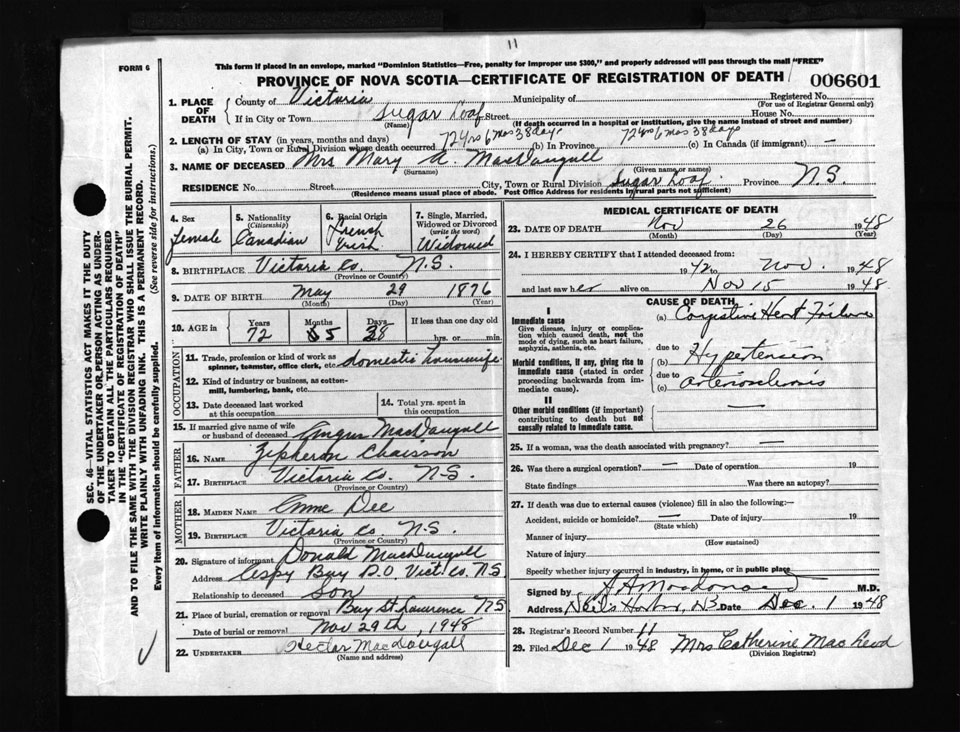 11
FORM 6
This form if placed in an envelope, marked "Dominion Statistics—Free, penalty for improper use $300," and properly addressed will pass through the mail "FREE"
PROVINCE OF NOVA SCOTIA—CERTIFICATE OF REGISTRATION OF DEATH 006601
1. PLACE OF DEATH
County of Victoria Municipality of Registered No.
(For use of Registrar General only)
If in City or Town Sugar Loaf Street House No.
(Name) (If death occurred in a hospital or institution, give the name instead of street and number)
2. LENGTH OF STAY (in years, months and days)
(a) In City, Town or Rural Division where death occurred 72 yrs 6 mos 38 days (b) In Province 72 yrs 6 mos 38 days (c) In Canada (if immigrant) —
3. NAME OF DECEASED Mrs Mary A. MacDougall
(Surname) (Given name or names)
RESIDENCE No. Street City, Town or Rural Division Sugar Loaf Province N.S.
(Residence means usual place of abode. Post Office Address for residents in rural parts not sufficient)
4. Sex
female
5. Nationality
(Citizenship)
Canadian
6. Racial Origin
French
Irish
7. Single, Married, Widowed or Divorced
(write the word)
Widowed
8. BIRTHPLACE Victoria Co. N.S.
(Province or Country)
9. DATE OF BIRTH May 29 1876
(Month) (Day) (Year)
10. AGE in
Years Months Days If less than one day old
72 5 28 hrs. or min.
OCCUPATION
11. Trade, profession or kind of work as spinner, teamster, office clerk, etc. domestic housewife
12. Kind of industry or business, as cotton-mill, lumbering, bank, etc.
13. Date deceased last worked at this occupation
14. Total yrs. spent in this occupation
15. If married give name of wife or husband of deceased Angus MacDougall
FATHER
16. Name Zipheron Chaisson
17. Birthplace Victoria Co. N.S.
(Province or Country)
MOTHER
18. Maiden Name Anne Dee
19. Birthplace Victoria Co. N.S.
(Province or Country)
20. Signature of informant Donald MacDougall
Address Aspy Bay P.O. Vict. Co. N.S
Relationship to deceased Son
21. Place of burial, cremation or removal Bay St. Lawrence N S
Date of burial or removal Nov 29th, 1948
22. UNDERTAKER Hector MacDougall
(Name and address)
MEDICAL CERTIFICATE OF DEATH
23. DATE OF DEATH Nov 26 1948
(Month) (Day) (Year)
24. I HEREBY CERTIFY that I attended deceased from:
1942 to Nov. 1948
and last saw her alive on Nov 15 1948
CAUSE OF DEATH
I
Immediate cause
Give disease, injury or complication which caused death, not the mode of dying, such as heart failure, asphyxia, asthenia, etc.
(a) Congestive Heart Failure
due to
Morbid conditions, if any, giving rise to immediate cause (stated in order proceeding backwards from immediate cause).
(b) Hypertension
due to
(c) arteriosclerosis
II
Other morbid conditions (if important) contributing to death but not causally related to immediate cause.
—
25. If a woman, was the death associated with pregnancy? —
26. Was there a surgical operation? — Date of operation 19
State findings Was there an autopsy?
27. If death was due to external causes (violence) fill in also the following:—
Accident, suicide or homicide? — Date of injury 19
(State which)
Manner of injury
(How sustained)
Nature of injury
Specify whether injury occurred in industry, in home, or in public place
Signed by M.D.
Address Neils Harbor, N.S. Date Dec. 1 1948
28. Registrar's Record Number 11
29. Filed Dec 1 1948 Mrs Catherine MacLeod
(Division Registrar)
SEC. 46—VITAL STATISTICS ACT MAKES IT THE DUTY
OF THE UNDERTAKER OR PERSON ACTING AS UNDER-
TAKER TO OBTAIN ALL THE PARTICULARS REQUIRED
IN THE "CERTIFICATE OF REGISTRATION OF DEATH"
AND TO FILE THE SAME WITH THE DIVISION REGISTRAR WHO SHALL ISSUE THE BURIAL PERMIT.
WRITE PLAINLY WITH UNFADING INK. THIS IS A PERMANENT RECORD.
Every item of information should be carefully supplied. (See reverse side for instructions.)